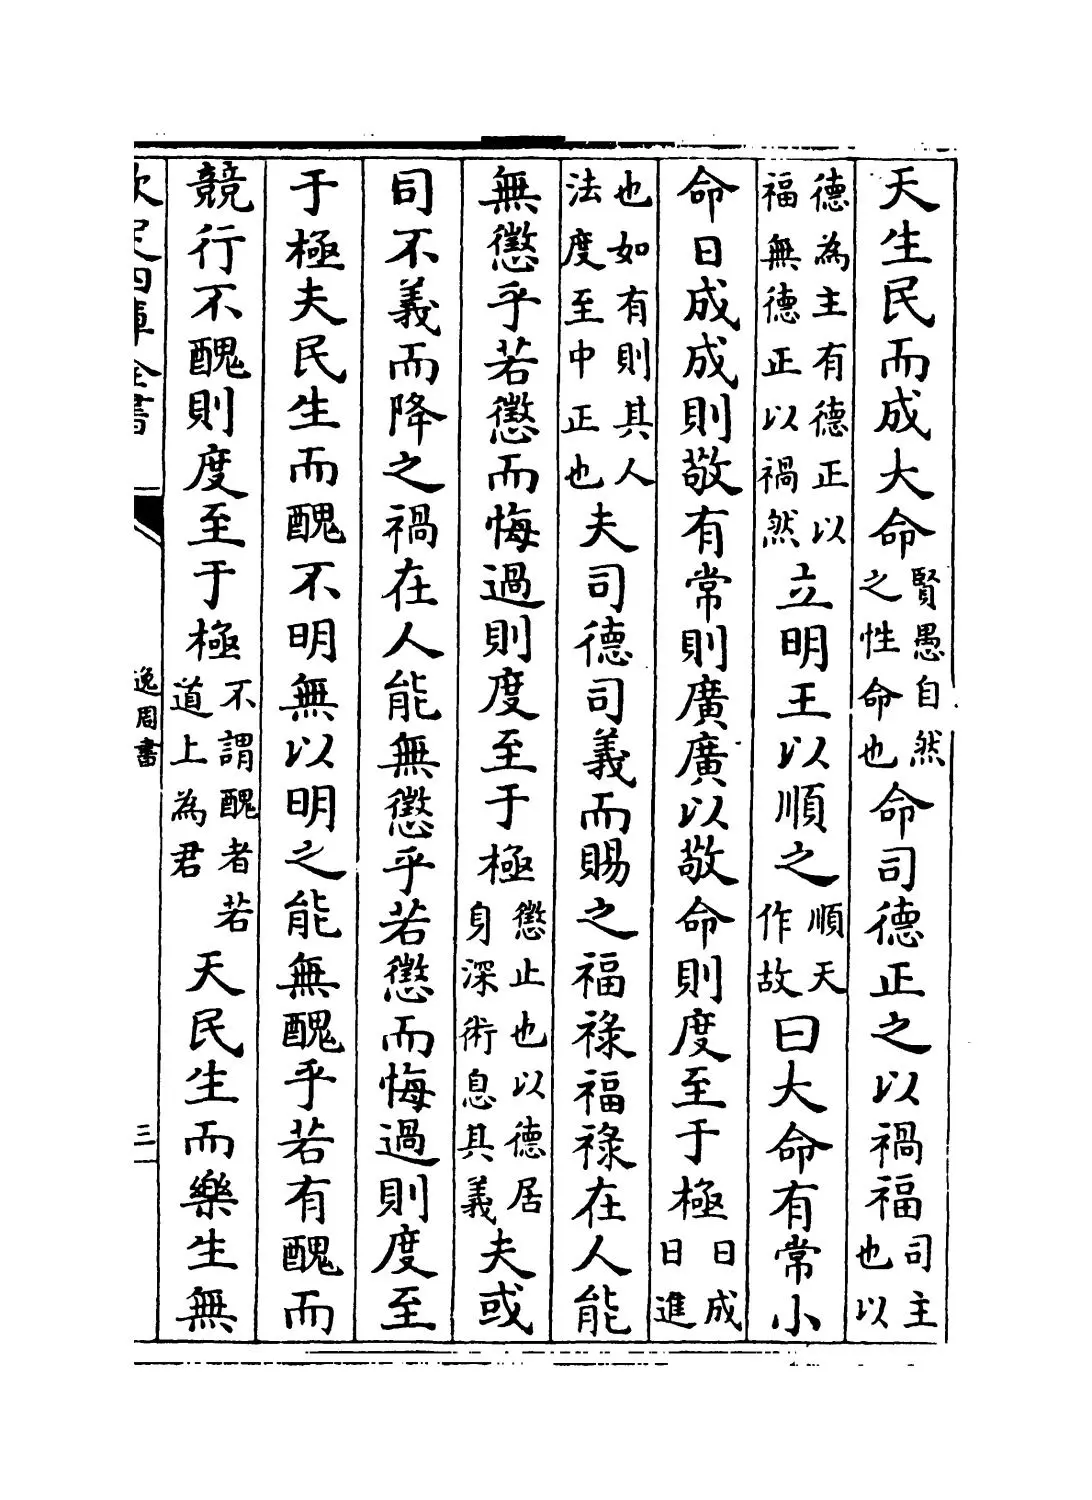 天生民而成大命賢愚自然之性命也命司德正之以禍福司主也以
德為主有德正以福無德正以禍然立明王以順之順天作故曰大命有常小
命日成成則敬有常則廣廣以敬命則度至于極日成日進
也如有則其人法度至中正也夫司德司義而賜之福祿福祿在人能
無懲乎若懲而悔過則度至于極懲止也以德居身深術息其義夫或
司不義而降之禍在人能無懲乎若懲而悔過則度至
于極夫民生而醜不明無以明之能無醜乎若有醜而
競行不醜則度至于極不謂醜者若道上為君天民生而樂生無
欽定四庫全書
逸周書
三